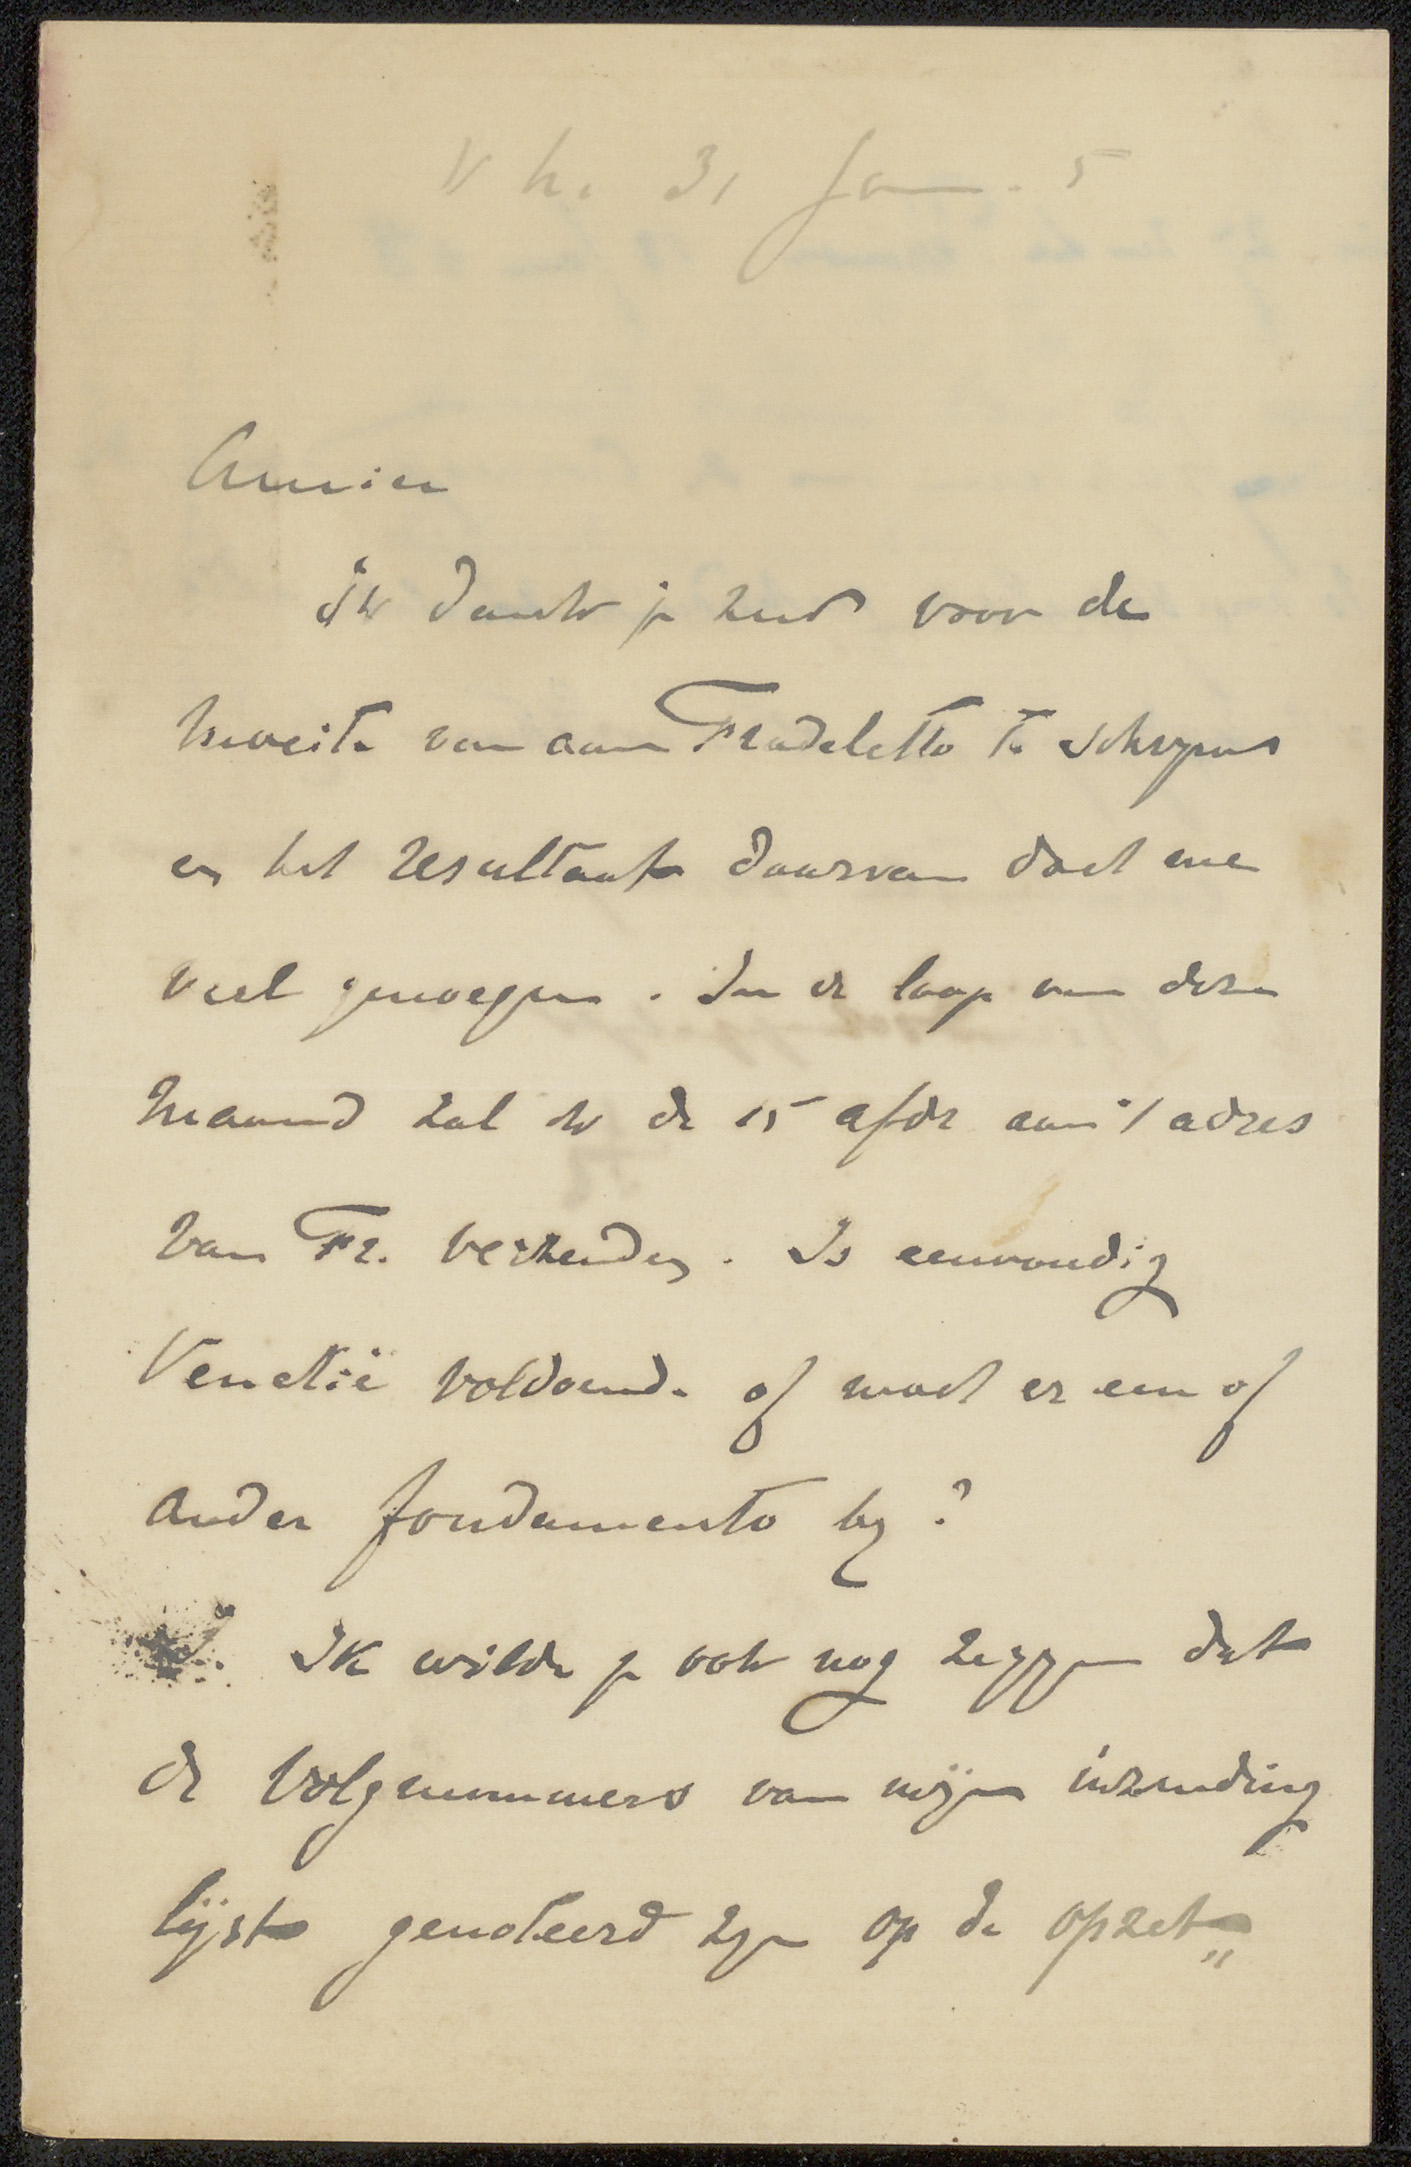 V h. 31 Jan. 5
Amice
Ik dank je zeer voor de
moeite van aan Fradeletto te schrijven
en het resultaat daarvan doet me
veel genoegen. In de loop van deze
maand zal ik de 15 afdr aan 't adres
van Fr. verzenden. Is eenvoudig
Venetië voldoende of moet er een of
ander fondamento bij?
Ik wilde je ook nog zeggen dat
de volgnummers van mijn inzending
lijst genoteerd zijn op de opzet„